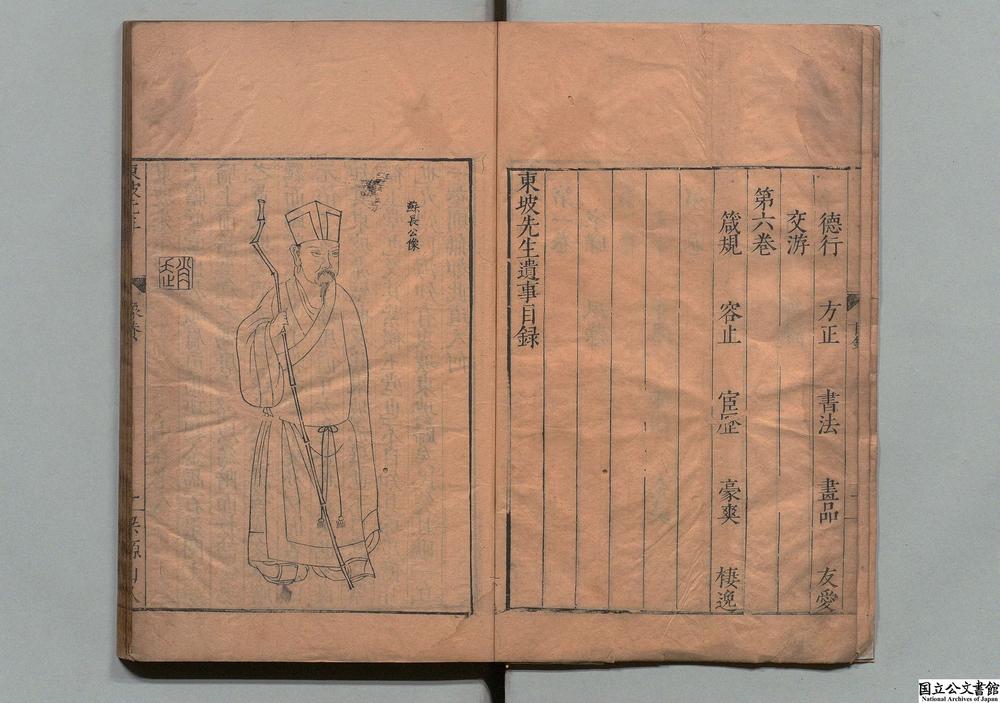 德行 方正 書法 畫品 友愛
交游
第六巻
箴規 容止 宦歷 豪爽 棲逸
東坡先生遺事目録
蘇長公像
国立公文書館
National Archives of Japan